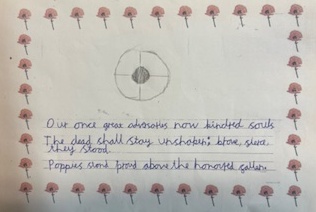 Our once great adversaries now kindred souls
The dead shall stay unshaken; brave, where
they stood.
Poppies stand proud above the honored gallan